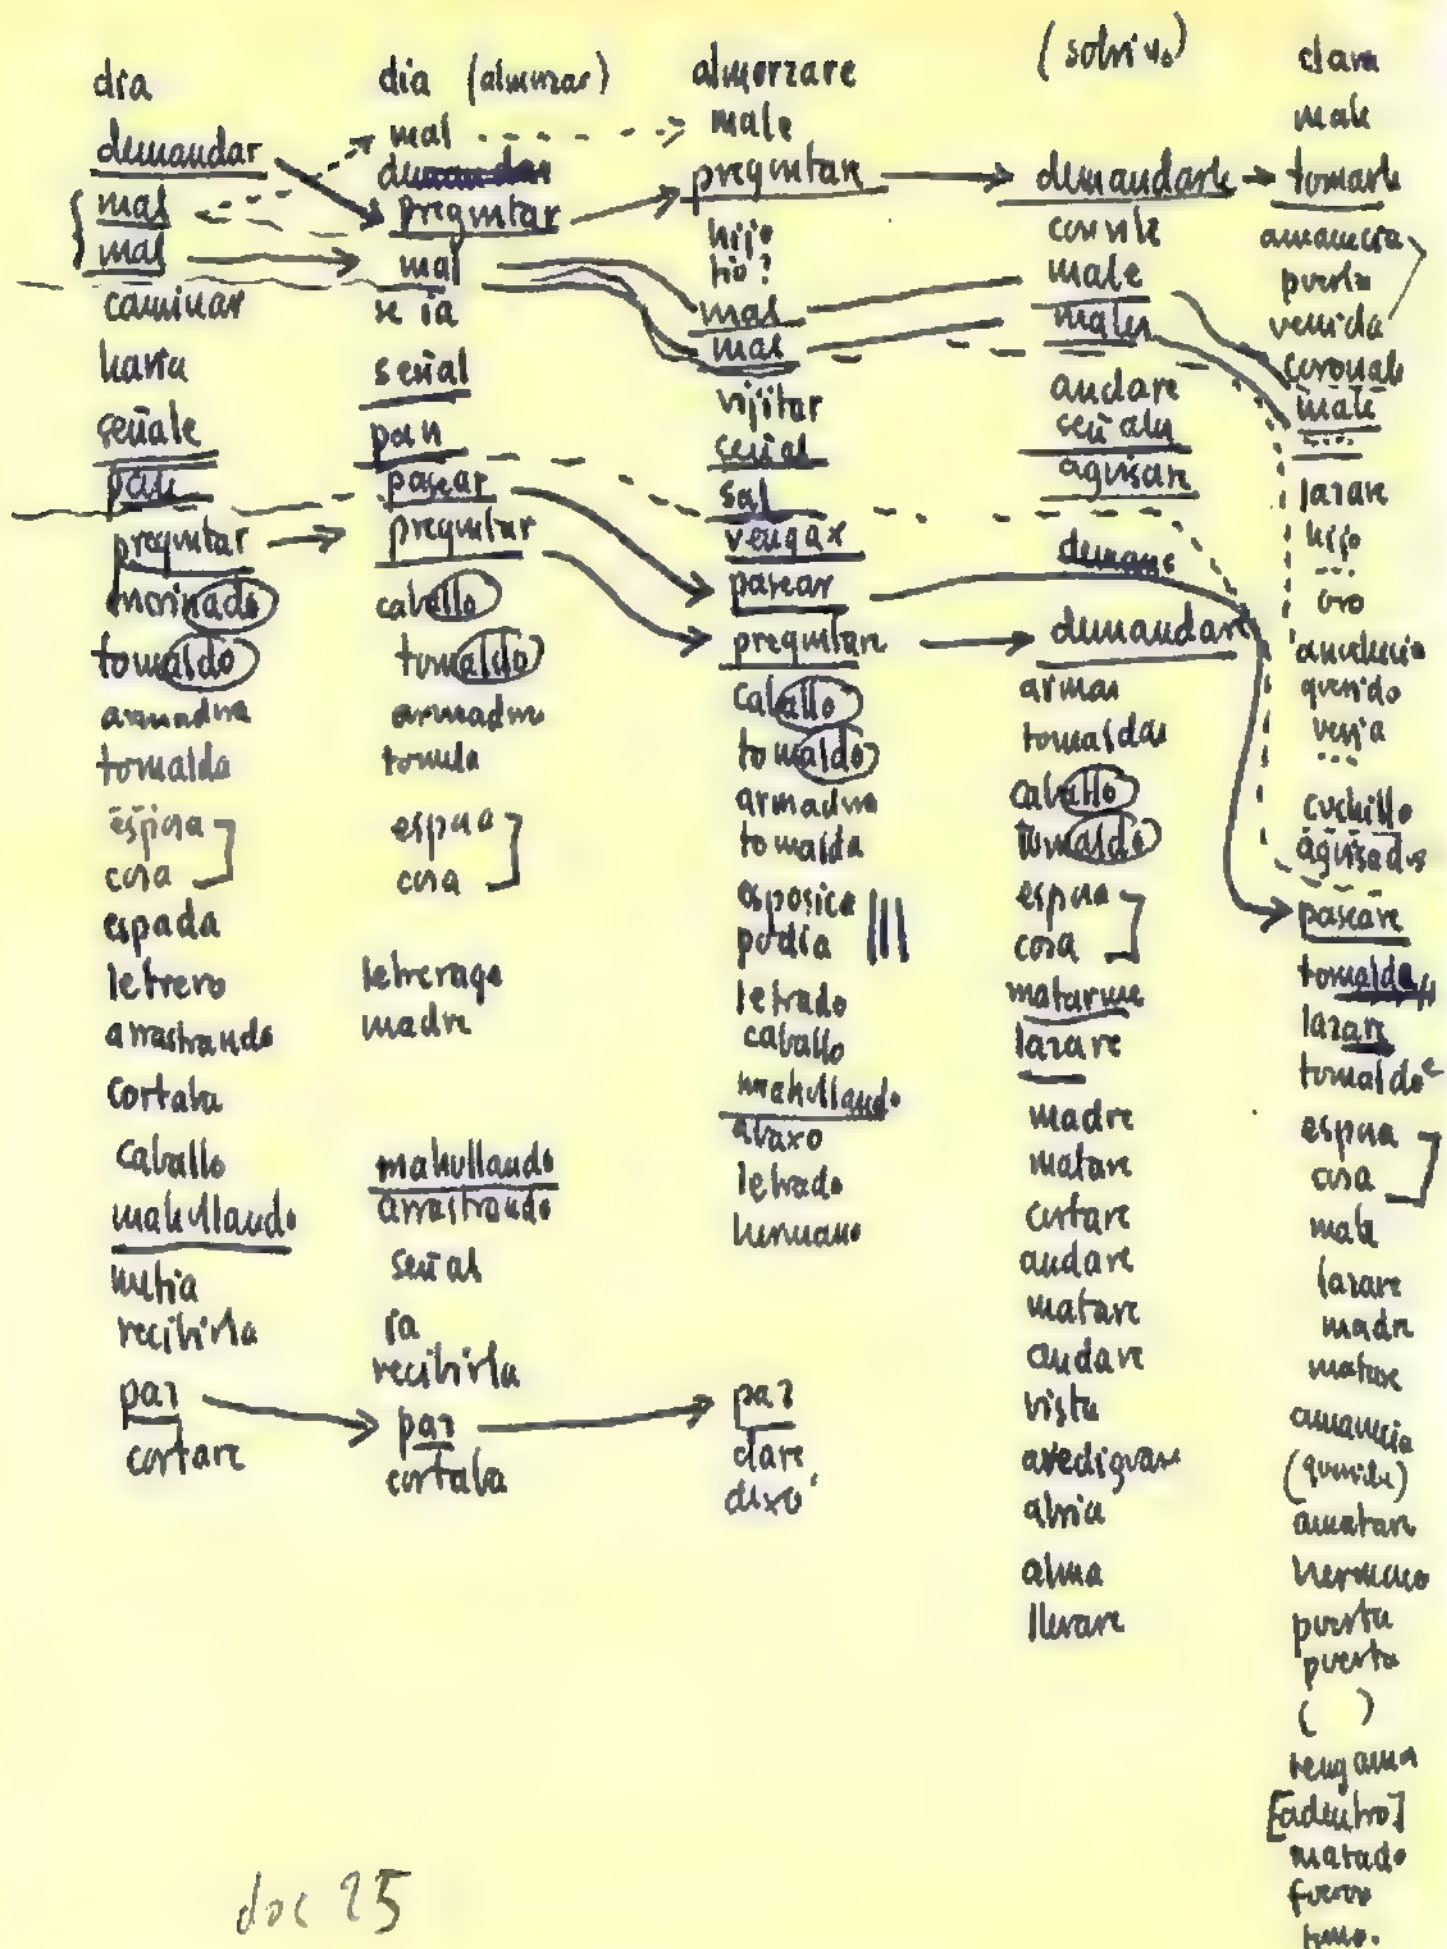 día
demandar
mal
mal
caminar
haría
señale
pan
preguntar
tomaldo
armadura
tomalda
esposa
cosa
espada
letrero
arrastrando
cortaba
caballo
mahullando
recibirla
paz
cortare
día (almorzar)
mal
demandar
preguntar
mal
se ia
señal
pan
pasear
preguntar
caballo
tomaldo
armadura
esposa
cosa
madre
mahullando
arrastrando
señal
ia
recibirla
paz
cortaba
almorzare
male
preguntare
hijo
tio?
mal
mal
vijitar
señal
sal
vengax
pasear
preguntare
caballo
tomaldo
armadura
tomalda
esposica
podía
letrado
caballo
mahullando
abaxo
letrado
hermano
paz
dare
dixo
(sobrino)
demandare
male
males
andare
agisare
demane
demandare
armas
tomaldas
caballo
tomaldo
esposa
cosa
matarme
lazare
madre
matare
cortare
andare
matare
andare
vista
abria
alma
llevare
clara
male
tomare
amanecia
puerta
venida
male
lazare
hijo
oro
querido
cuchillo
agisados
paseare
tomalda
lazare
tomaldo
esposa
cosa
male
lazare
madre
matare
amanecia
amatare
hermano
puerta
puerta
( )
[adentro]
matado
doc 25